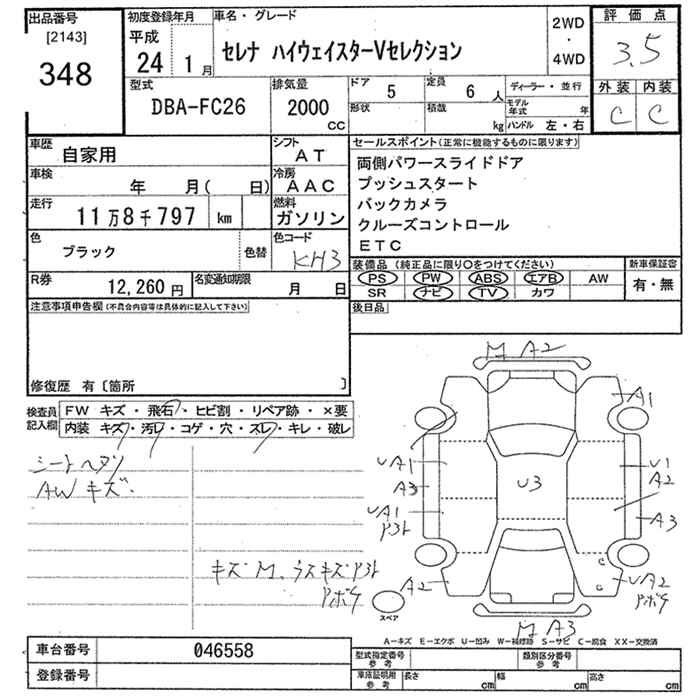 出品番号
[2143]
348
初度登録年月
平成
24 1月
車名・グレード
セレナ ハイウェイスターVセレクション
2WD
・
4WD
評価点
3.5
外装 内装
C C
型式
DBA-FC26
排気量
2000
CC
ドア
5
定員
6 人
形状
積載
kg
ディーラー・並行
モデル年式 年
ハンドル 左・右
車歴
自家用
シフト
AT
車検
年 月( 日)
冷房
AAC
走行
11万8千797 km
燃料
ガソリン
色
ブラック
色替
色コード
KH3
R券
12,260 円
名変通知期限
月 日
セールスポイント(正常に機能するものに限ります)
両側パワースライドドア
プッシュスタート
バックカメラ
クルーズコントロール
ETC
装備品 (純正品に限り○をつけてください)
PS PW ABS エアB AW
SR ナビ TV カワ
新車保証書
有・無
後日品
注意事項申告欄(不具合内容等は具体的に記入して下さい)
修復歴 有〔箇所 〕
検査員記入欄
FW キズ・飛石・ヒビ割・リペア跡・×要
内装 キズ・汚レ・コゲ・穴・スレ・キレ・破レ
シートヘタリ
AWキズ・
キズM、ラスキズP3ト
Pボケ
M A2
A1
UA1
A3
UA1
P3ト
U3
U1
A2
A3
A2
C
C
UA2
Pボケ
M A3
スペア
A−キズ E−エクボ U−凹み W−補修跡 S−サビ C−腐食 XX−交換済
車台番号
046558
登録番号
型式指定番号
参考
類別区分番号
参考
車庫証明用
参考
長さ
cm
幅
cm
高さ
cm